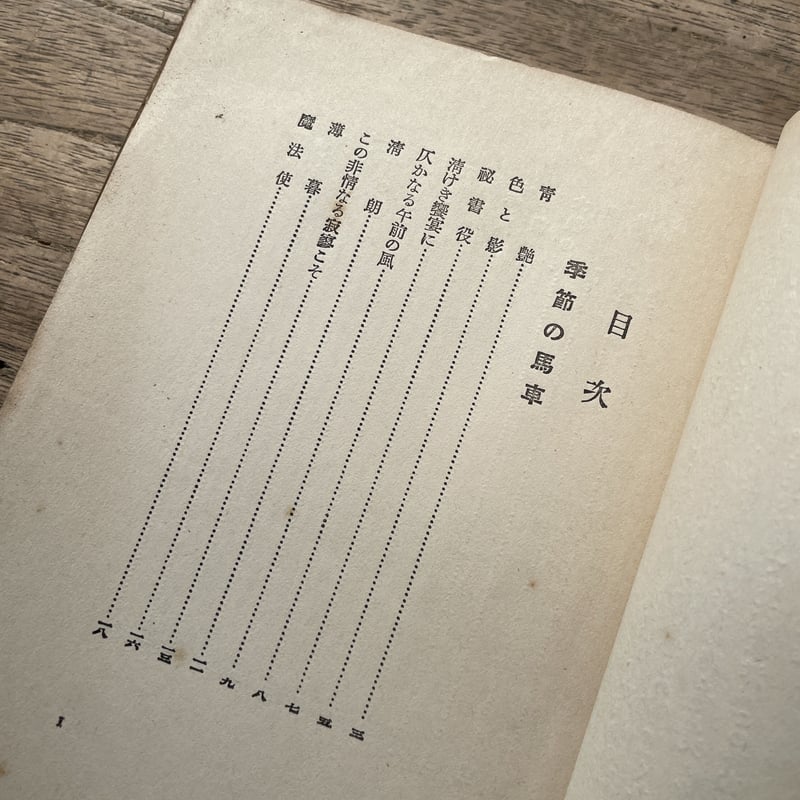 目次
季節の馬車
青艶……三
色と影……五
祕書役……七
淸けき饗宴に……八
仄かなる午前の風……九
淸朗……一二
この非情なる寂寥こそ……一五
薄暮……一六
魔法使……一八
1